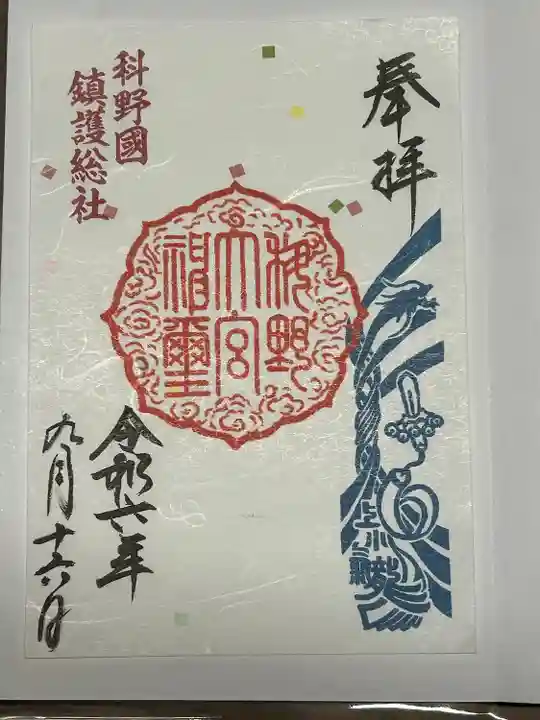 奉拝
科野國
鎮護総社
科野
大宮
神璽
令和六年
九月十六日
上小
龍